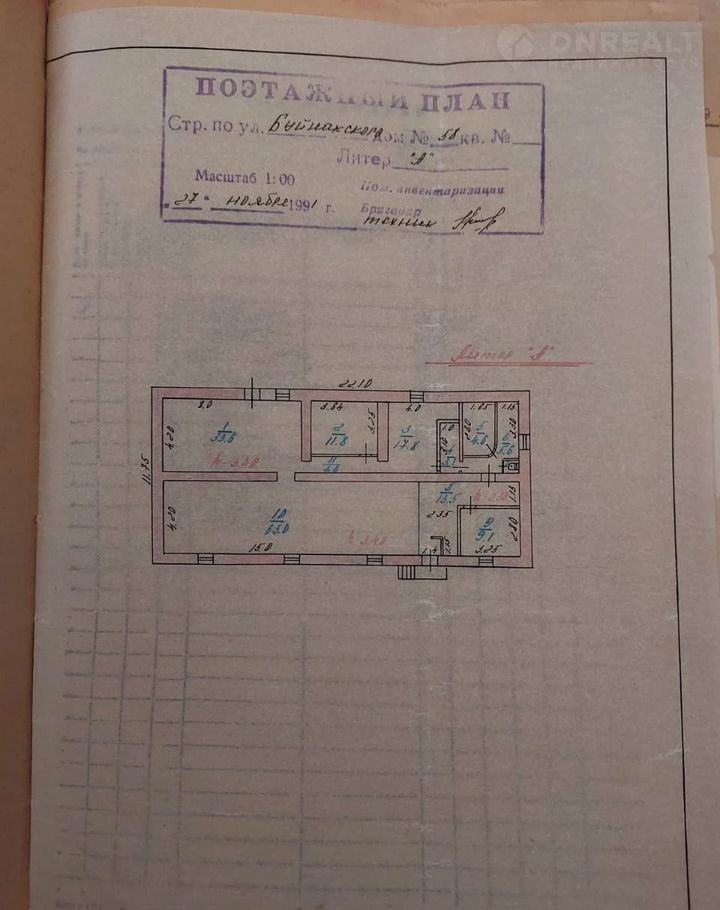 ONREALT
НЕДВИЖИМОСТЬ
ПОЭТАЖНЫЙ ПЛАН
Стр. по ул. Буйнакского дом № 58 кв. №
Литер "А"
Масштаб 1:00
Пом. инвентаризации
"27" ноября 1991 г.
Бригадир
техник
Литер "А"
22.10
8.0 3.64 4.0 1.65 1.15
4.20 1 33.6 2 11.8 3.25 3 17.8 1.0 3.10 4 5 4.8 6 3.30
h-3.40 11
11.75
8 13.5 h-2.50 1.15
4.20 10 63.0 2.35 9 9.1 2.80
15.0 h-3.40 1.4 1.15 3.25